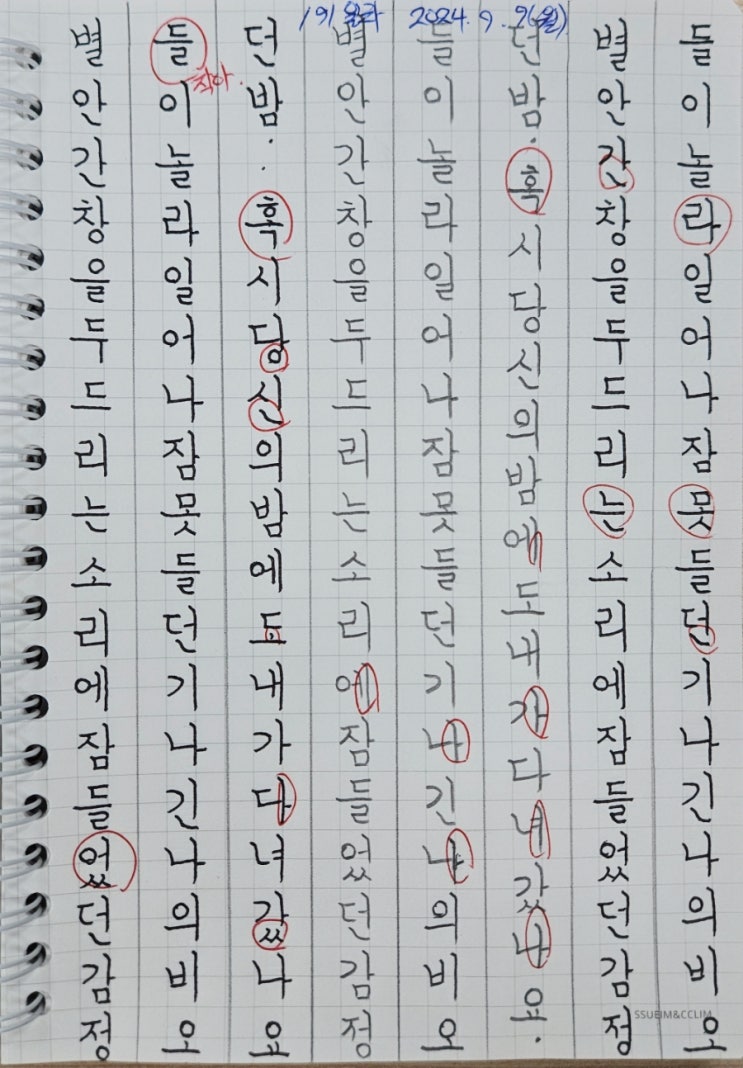 191일차 2024. 9. 9(월)
별안간창을두드리는소리에잠들었던감정
들이놀라일어나잠못들던기나긴나의비오
작아.
던밤..혹시당신의밤에도내가다녀갔나요
별안간창을두드리는소리에잠들었던감정
들이놀라일어나잠못들던기나긴나의비오
던밤.혹시당신의밤에도내가다녀갔나요.
별안간창을두드리는소리에잠들었던감정
들이놀라일어나잠못들던기나긴나의비오